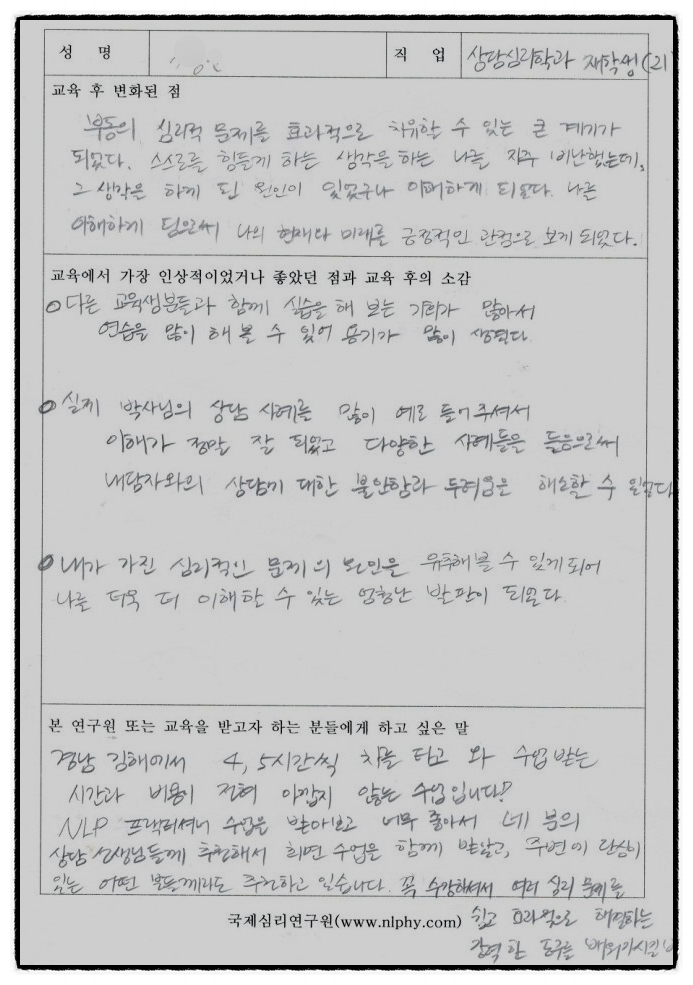 성 명
직 업 상담심리학과 재학생(21
교육 후 변화된 점
부동의 심리적 문제를 효과적으로 치유할 수 있는 큰 계기가
되었다. 스스로를 힘들게 하는 생각을 하는 나를 자주 비난했는데,
그 생각은 하게 된 원인이 있었구나 이해하게 되었다. 나를
이해하게 됨으로써 나의 현재와 미래를 긍정적인 관점으로 보게 되었다.
교육에서 가장 인상적이었거나 좋았던 점과 교육 후의 소감
○ 다른 교육생분들과 함께 실습을 해 보는 기회가 많아서
연습을 많이 해 볼 수 있어 용기가 많이 생겼다.
○ 실제 박사님의 상담 사례를 많이 예로 들어주셔서
이해가 정말 잘 되었고 다양한 사례들을 들음으로써
내담자와의 상담에 대한 불안함과 두려움은 해소할 수 있었다
○ 내가 가진 심리적인 문제의 원인을 유추해 볼 수 있게 되어
나를 더욱 더 이해할 수 있는 엄청난 발판이 되었다.
본 연구원 또는 교육을 받고자 하는 분들에게 하고 싶은 말
경남 김해에서 4, 5시간씩 차를 타고 와 수업 받는
시간과 비용이 전혀 아깝지 않는 수업입니다!
NLP 프랙티셔너 수업을 받아보고 너무 좋아서 네 분의
상담 선생님들께 추천해서 최면 수업을 함께 받았고, 주변에 관심이
있는 어떤 분들께라도 추천하고 있습니다. 꼭 수강하셔서 여러 심리 문제를
국제심리연구원(www.nlphy.com) 쉽고 효과적으로 해결하는
강력한 도구를 배워가시길